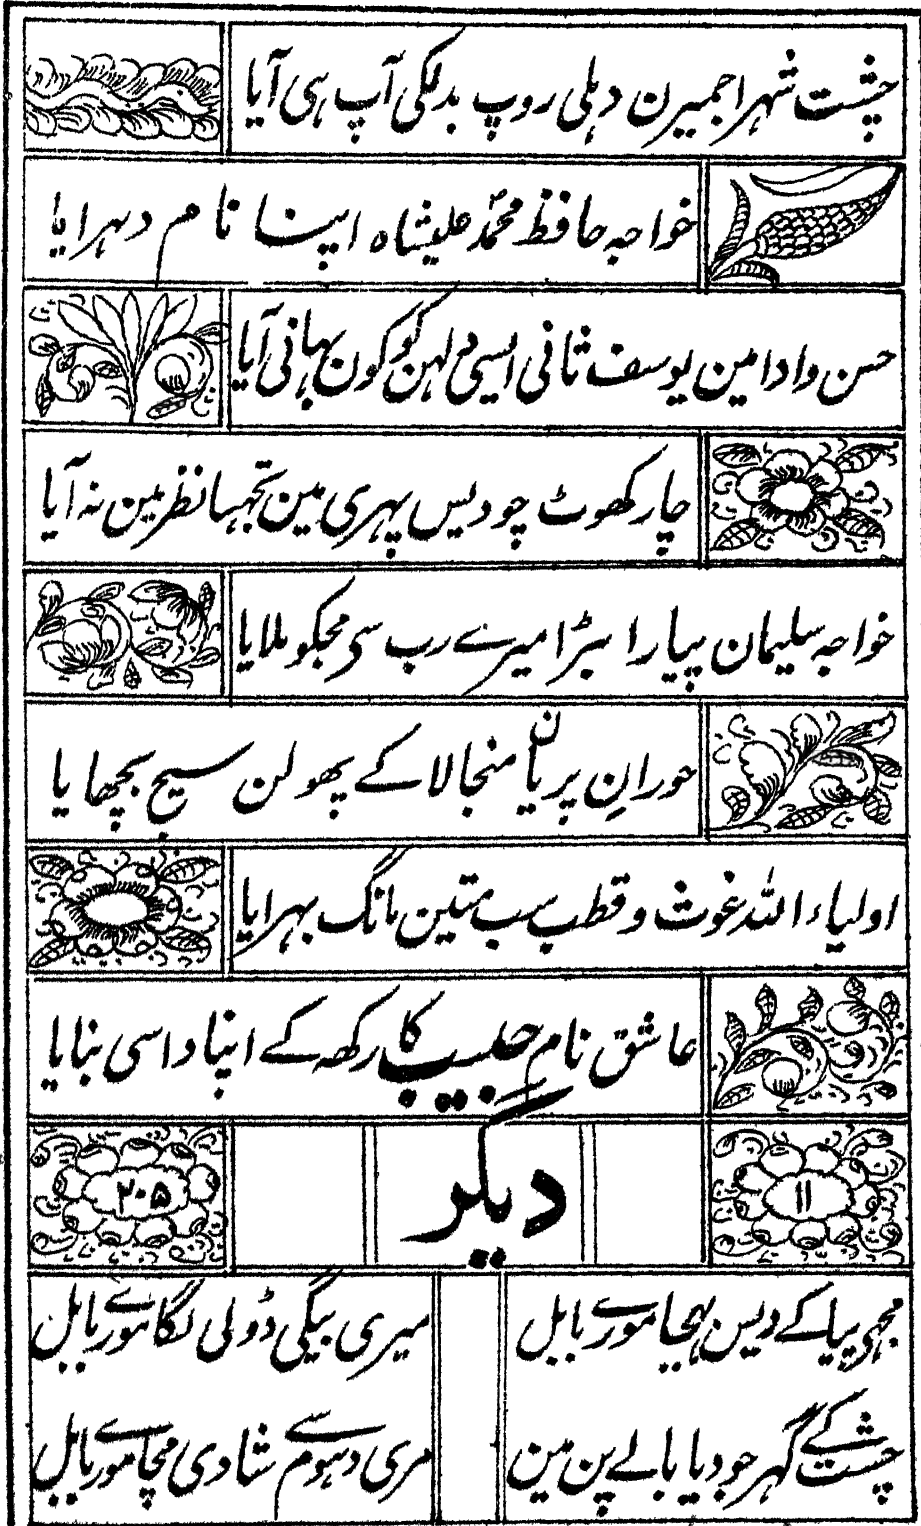 چشت شہر اجمیرن دہلی روپ بدلکی آپ ہی آیا
خواجہ حافظ محمد علیشاہ اپنا نام دہرایا
حسن و ادا مین یوسف ثانی ایسی دلہن کو کون بہانی آیا
چار کھوٹ چو دیس پہری مین تجہسا نظر مین نہ آیا
خواجہ سلیمان پیارا بڑا میرے رب سی مجکو ملایا
حوران پریان منجالا کے پھولن سیج بچھایا
اولیاء اللہ غوث و قطب سب متین مانگ بہرایا
عاشق نام حبیب کا رکھہ کے اپنا داسی بنایا
۱۱ دیگر ۲۰۵
مجہی پیا کے دیس بہیجا مورے بابل میری بیگی ڈولی لگا مورے بابل
چشت کے گہر جو دیا بالے پن مین مری دہوم سے شادی مچا مورے بابل